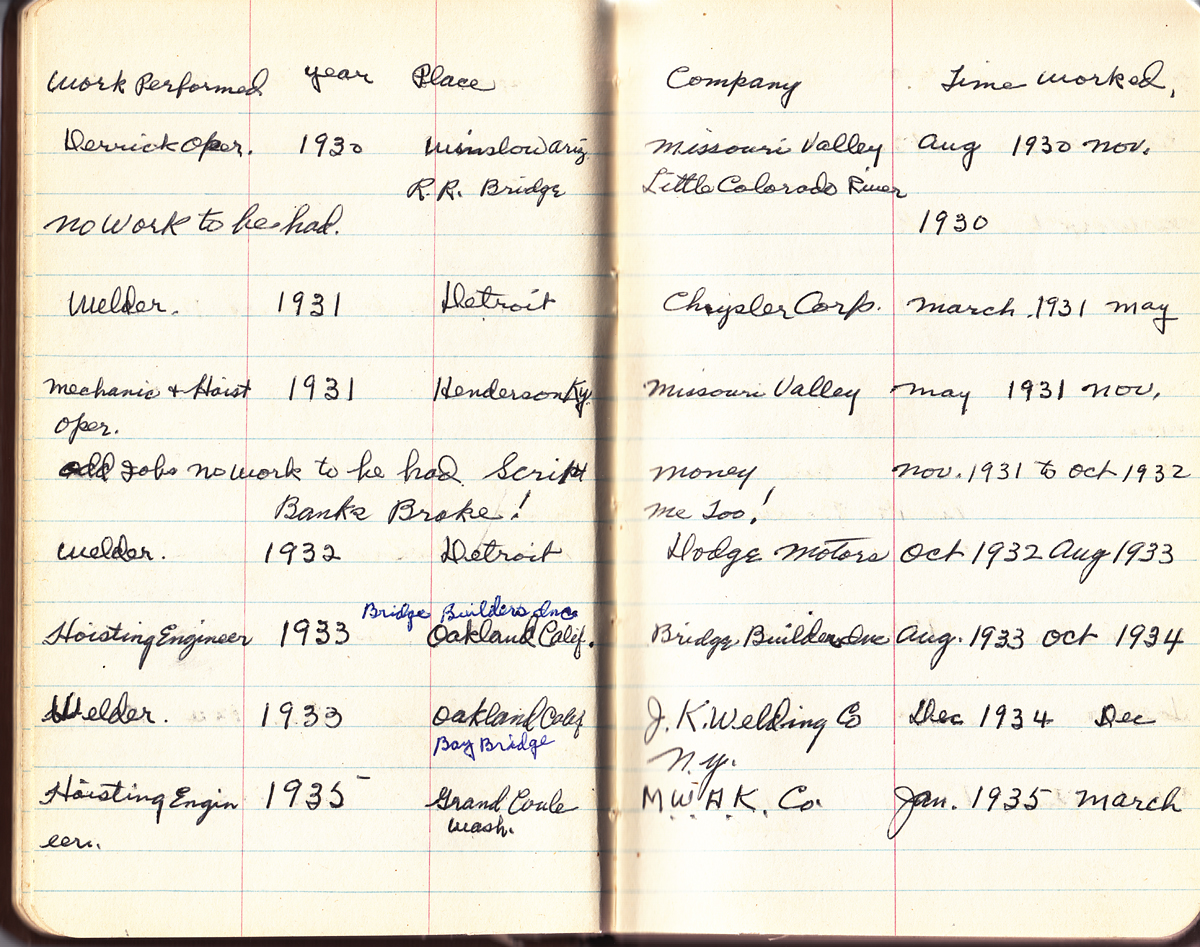 Work Performed year Place Company Time worked,
Derrick Oper. 1930 Winslow Ariz. Missouri Valley Aug 1930 nov.
R.R. Bridge Little Colorado River
no work to be had. 1930
Welder. 1931 Detroit Chrysler Corp. march. 1931 may
mechanic + Hoist 1931 Henderson Ky. Missouri Valley may 1931 nov.
oper.
odd Jobs no work to be had Script money nov. 1931 to Oct 1932
Banks Broke! me Too!
Welder. 1932 Detroit Dodge Motors Oct 1932 Aug 1933
Bridge Builders Inc
Hoisting Engineer 1933 Oakland Calif. Bridge Builders Inc Aug. 1933 Oct 1934
Welder. 1933 Oakland Calif J. K. Welding Co Dec 1934 Dec
Bay Bridge N.Y.
Hoisting Engin 1935 Grand Coule M W A K. Co. Jan. 1935 march
eer. Wash.